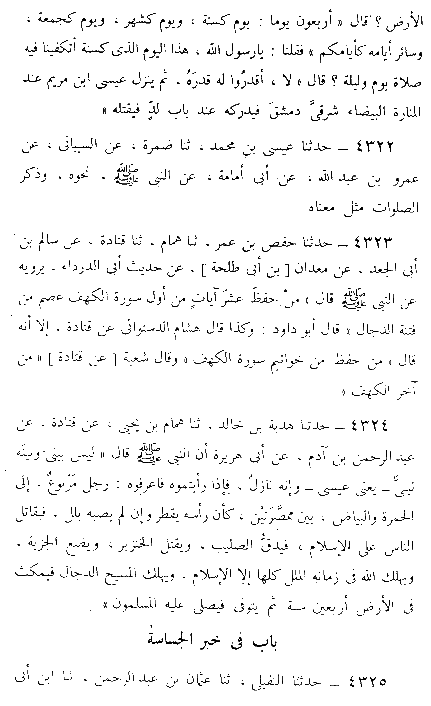 الأرض ؟ قال « أربعون يوما : يوم كسنة ، ويوم كشهر ، ويوم كجمعة ،
وسائر أيامه كأيامكم » فقلنا : يارسول الله ، هذا اليوم الذى كسنة أتكفينا فيه
صلاة يوم وليلة ؟ قال « لا ، أقدرُوا له قدرَهُ . ثم ينزل عيسى ابن مريم عند
المنارة البيضاء شرقىَّ دمشقَ فيدركه عند باب لدٍّ فيقتله »
٤٣٢٢ – حدثنا عيسى بن محمد ، ثنا ضمرة ، عن السيبانى ، عن
عمرو بن عبد الله ، عن أبى أمامة ، عن النبى ﷺ ، نحوه . وذكر
الصلوات مثل معناه
٤٣٢٣ – حدثنا حفص بن عمر ، ثنا همام ، ثنا قتادة ، عن سالم بن
أبى الجعد ، عن معدان [ بن أبى طلحة ] ، عن حديث أبى الدرداء ، يرويه
عن النبى ﷺ قال « منْ حفظَ عشرَ آياتٍ من أول سورة الكهف عصم من
فتنة الدجال » قال أبو داود : وكذا قال هشام الدستوائى عن قتادة . إلا أنه
قال « من حفظ من خواتيم سورة الكهف » وقال شعبة [ عن قتادة ] « من
آخر الكهف »
٤٣٢٤ – حدثنا هدبة بن خالد ، ثنا همام بن يحيى ، عن قتادة ، عن
عبد الرحمن بن آدم ، عن أبى هريرة أن النبى ﷺ قال « ليس بينى وبينَه
نبىٌّ – يعنى عيسى – وإنه نازلٌ ، فإذا رأيتموه فاعرفوه : رجل مَرْبوعٌ . إلى
الحمرة والبياض ، بين ممصَّرَتَيْن ، كأن رأسه يقطر وإن لم يصبه بلل . فيقاتل
الناس على الإسلام ، فيدقُّ الصليب ، ويقتل الخنزير ، ويضع الجزية ،
ويهلك الله فى زمانه الملل كلها إلا الإسلام . ويهلك المسيح الدجال فيمكث
فى الأرض أربعين سنة ثم يتوفى فيصلى عليه المسلمون »
باب فى خبر الجساسة
٤٣٢٥ – حدثنا النفيلى ، ثنا عثمان بن عبد الرحمن ، ثنا ابن أبى